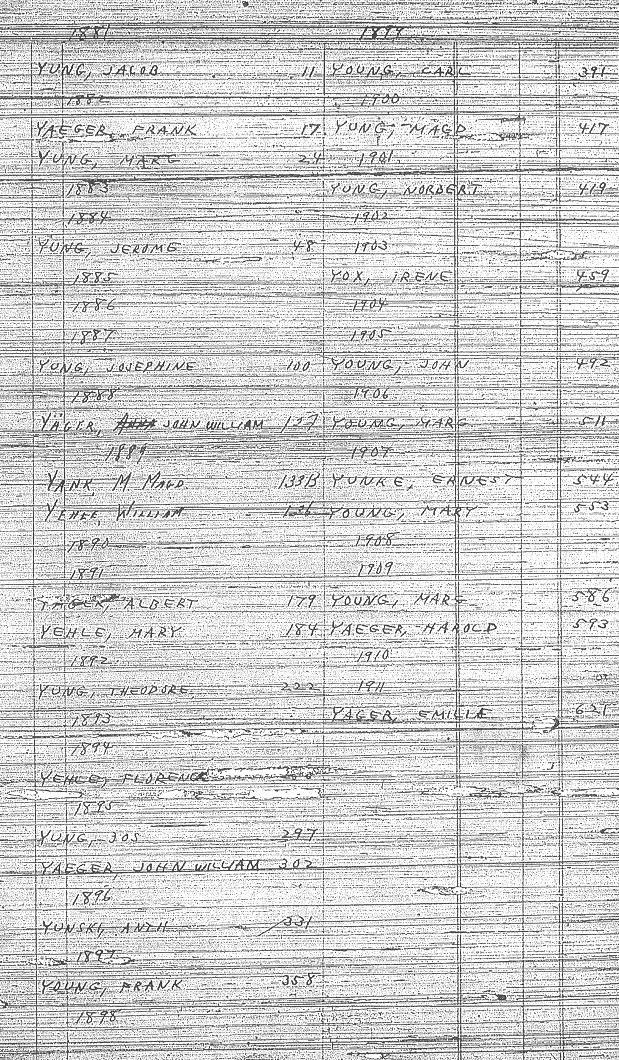 1881
YUNG, JACOB 11
1882
YAEGER, FRANK 17
YUNG, MARG 24
1883
1884
YUNG, JEROME 48
1885
1886
1887
YUNG, JOSEPHINE 100
1888
YAGER, JOHN WILLIAM 127
1889
YANK, M MAGD 133B
YEHLE, WILLIAM 136
1890
1891
YAGER, ALBERT 179
YEHLE, MARY 184
1892
YUNG, THEODORE 222
1893
1894
YEHLE, FLORENCE
1895
YUNG, JOS 297
YAEGER, JOHN WILLIAM 302
1896
YUNSKI, 331
1897
YOUNG, FRANK 358
1898
1899
YOUNG, CARL 391
1900
YUNG, MAGD 417
1901
YUNG, NORBERT 419
1902
1903
YOX, IRENE 459
1904
1905
YOUNG, JOHN 492
1906
YOUNG, MARG 511
1907
YUNKE, ERNEST 544
YOUNG, MARY 553
1908
1909
YOUNG, MARG 586
YAEGER, HAROLD 593
1910
1911
YAGER, EMILIE 621